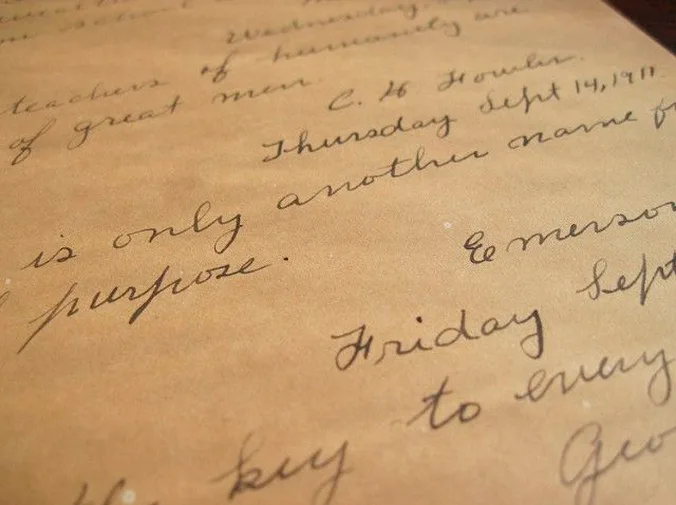 Wednesday,
teachers of humanity are
of great men.
C. H Fowler.
Thursday Sept 14, 1911.
is only another name
purpose.
Emerson
Friday Sept
to every
the key
Geo